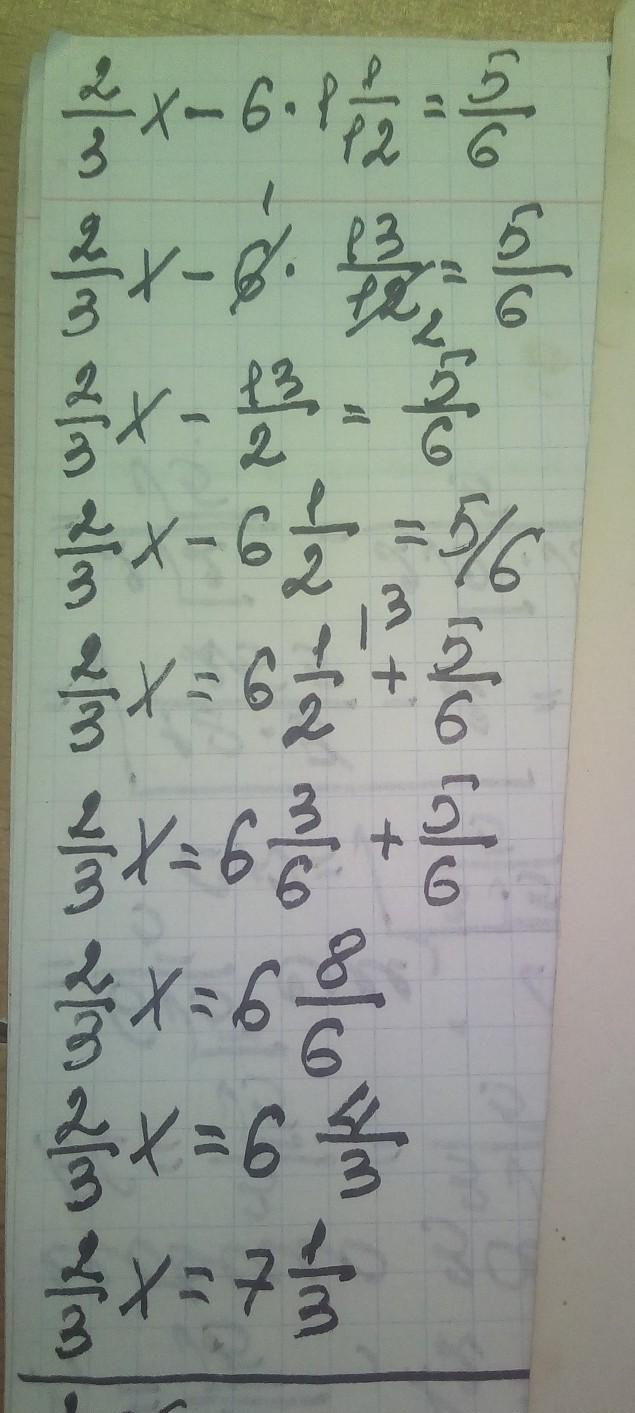 2/3 x - 6 · 1 1/12 = 5/6
2/3 x - 6 1 · 13/12 2 = 5/6
2/3 x - 13/2 = 5/6
2/3 x - 6 1/2 = 5/6
2/3 x = 6 1/2 |3 + 5/6
2/3 x = 6 3/6 + 5/6
2/3 x = 6 8/6
2/3 x = 6 4/3
2/3 x = 7 1/3